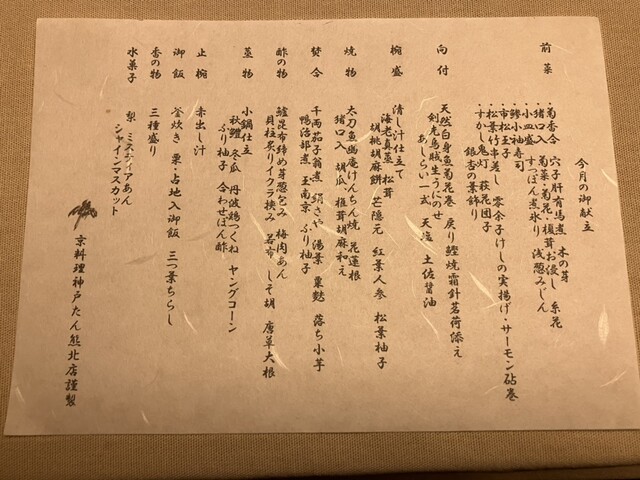 今月の御献立
前菜
・菊香合 穴子肝有馬煮 木の芽
・猪口 菊菜・菊花・榎茸お浸し 糸花
・小皿盛 すっぽん煮氷り 浅葱みじん
・鯵小袖寿司
・市松玉子
・松葉竹串差し 零余子けしの実揚げ・サーモン砧巻
・すかし鬼灯 萩花団子
銀杏の葉飾り
向付
天然白身魚菊花巻 戻り鰹焼霜針茗荷添え
剣先烏賊生うにのせ
あしらい一式 天塩 土佐醤油
椀盛
清し汁仕立て
海老真蒸 松茸
胡桃胡麻餅 芒隠元 紅葉人参 松葉柚子
焼物
太刀魚幽庵けんちん焼 花蓮根
猪口入 胡瓜、椎茸胡麻和え
焚合
千両茄子翁煮 絹さや 湯葉 粟麩 落ち小芋
鴨治部煮 玉南京 ふり柚子
酢の物
鱧昆布締め芽葱包み 梅肉あん
貝柱炙りイクラ挟み 若布 しそ胡 唐草大根
蒸物
小鍋仕立
秋鱧 冬瓜 丹波鶏つくね ヤングコーン
ふり柚子 合わせぽん酢
止椀
赤出し汁
御飯
釜炊き 栗・占地入御飯 三つ葉ちらし
香の物
三種盛り
水菓子
梨 ミスティアあん
シャインマスカット
京料理神戸たん熊北店謹製